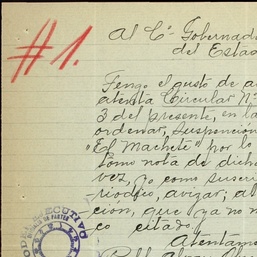 #1.
Al C. Gobernad
del Estad
Tengo el gusto de a
atenta Circular N°
3 del presente, en la
ordenar, suspención
"El Machete" por lo
tomo nota de dicho
vez, yo como suscri
riodico, avizar, al
ción, que ya no m
co citado.
Atentame